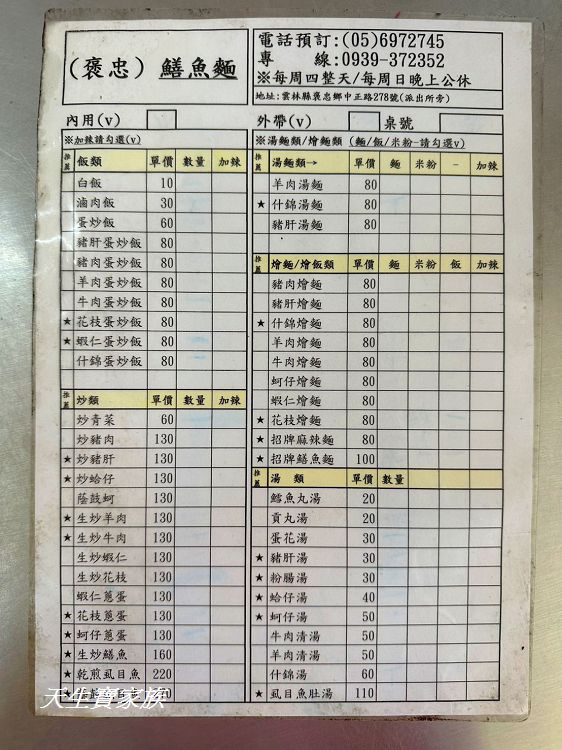 (褒忠) 鱔魚麵
電話預訂:(05)6972745
專 線:0939-372352
※每周四整天/每周日晚上公休
地址:雲林縣褒忠鄉中正路278號(派出所旁)
內用(v)
外帶(v) 桌號
※加辣請勾選(v)
※湯麵類/燴麵類 (麵/飯/米粉-請勾選v)
推薦 飯類 單價 數量 加辣
白飯 10
滷肉飯 30
蛋炒飯 60
豬肝蛋炒飯 80
豬肉蛋炒飯 80
羊肉蛋炒飯 80
牛肉蛋炒飯 80
★ 花枝蛋炒飯 80
★ 蝦仁蛋炒飯 80
什錦蛋炒飯 80
推薦 炒類 單價 數量 加辣
炒青菜 60
炒豬肉 130
★ 炒豬肝 130
★ 炒蛤仔 130
蔭鼓蚵 130
★ 生炒羊肉 130
★ 生炒牛肉 130
生炒蝦仁 130
生炒花枝 130
蝦仁蔥蛋 130
★ 花枝蔥蛋 130
★ 蚵仔蔥蛋 130
★ 生炒鱔魚 160
★ 乾煎虱目魚 220
推薦 湯麵類→ 單價 麵 米粉 - 加辣
羊肉湯麵 80
★ 什錦湯麵 80
豬肝湯麵 80
推薦 燴麵/燴飯類 單價 麵 米粉 飯 加辣
豬肉燴麵 80
豬肝燴麵 80
★ 什錦燴麵 80
羊肉燴麵 80
牛肉燴麵 80
蚵仔燴麵 80
蝦仁燴麵 80
★ 花枝燴麵 80
★ 招牌麻辣麵 80
★ 招牌鱔魚麵 100
推薦 湯 類 單價 數量
鱈魚丸湯 20
貢丸湯 20
蛋花湯 30
★ 豬肝湯 30
★ 粉腸湯 30
★ 蛤仔湯 40
★ 蚵仔湯 50
牛肉清湯 50
羊肉清湯 50
什錦湯 60
★ 虱目魚肚湯 110
天生寶家族